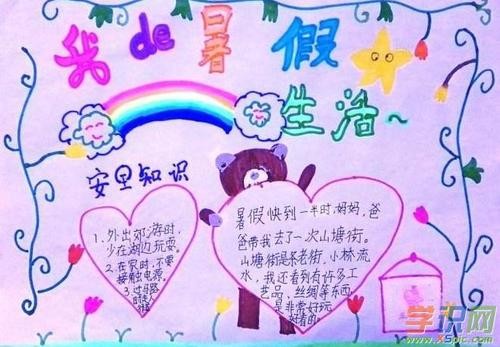 我de暑假
生活~
安里知识
1、外出郊游时,
少在湖边玩耍。
2、在家时,不要
接触电源。
3、过马路
暑假快到一半时,妈妈,爸
爸带我去了一次山塘街。
山塘街是条老街,小桥流
水,我还看到有许多工
艺品,丝绸等东西,
是非常好玩
好看的。
学识网
www.XSpic.com